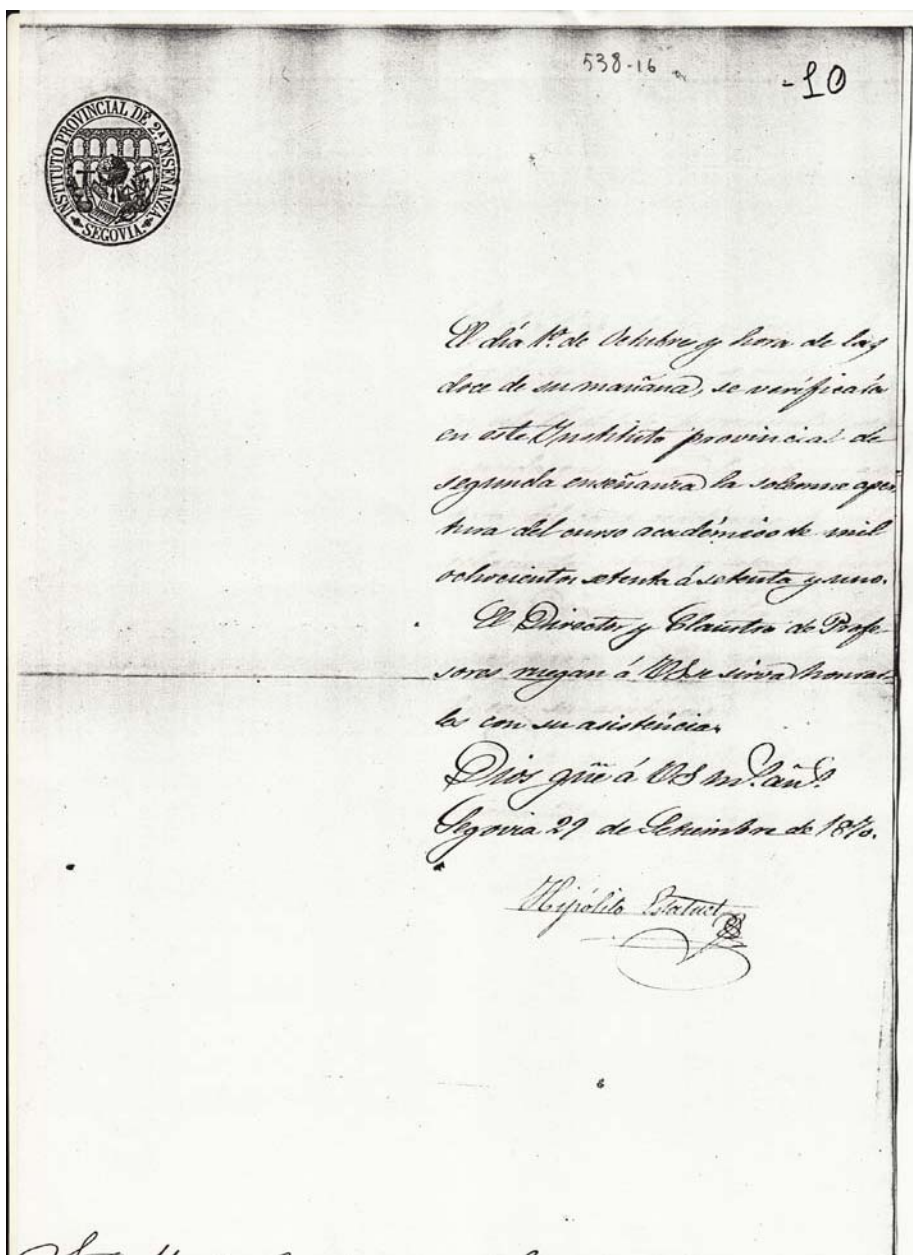 538-16
-10
INSTITUTO PROVINCIAL DE 2ª ENSEÑANZA.
SEGOVIA.
El día 1º de Octubre y hora de las
doce de su mañana, se verificará
en este Instituto provincial de
segunda enseñanza la solemne aper
tura del curso académico de mil
ochocientos setenta á setenta y uno.
El Director y Claustro de Profe-
sores ruegan á VS se sirva honrar
les con su asistencia.
Dios güe á VS m.s añ.s
Segovia 29 de Setiembre de 1870.
Hipólito